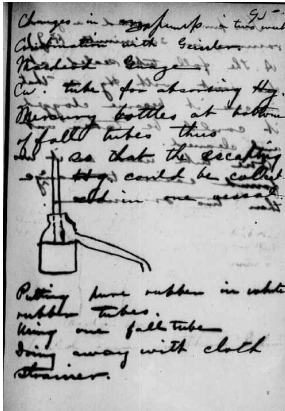 95-
Changes in pump in two
Combination with Geissler
McLeod Gauge
Cu. tube for absorbing Hg.
Mercury bottles at bottom
of fall tubes thus
so that the escaping
Hg could be
in one vessel
Putting pure rubber in white
rubber tubes.
Using one fall tube
Doing away with cloth
strainer.